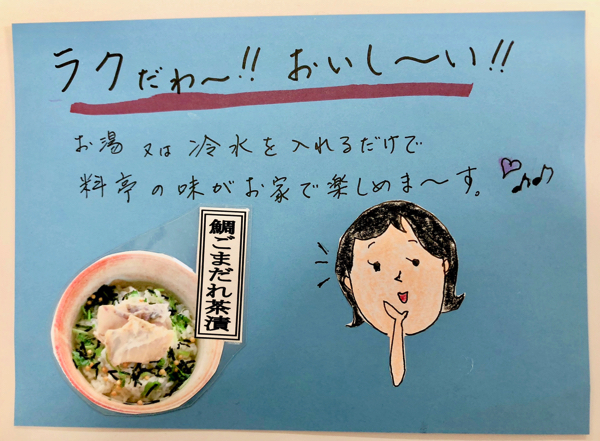 ラクだわ～!! おいし～い!!
お湯又は冷水を入れるだけで
料亭の味がお家で楽しめま～す。
鯛ごまだれ茶漬